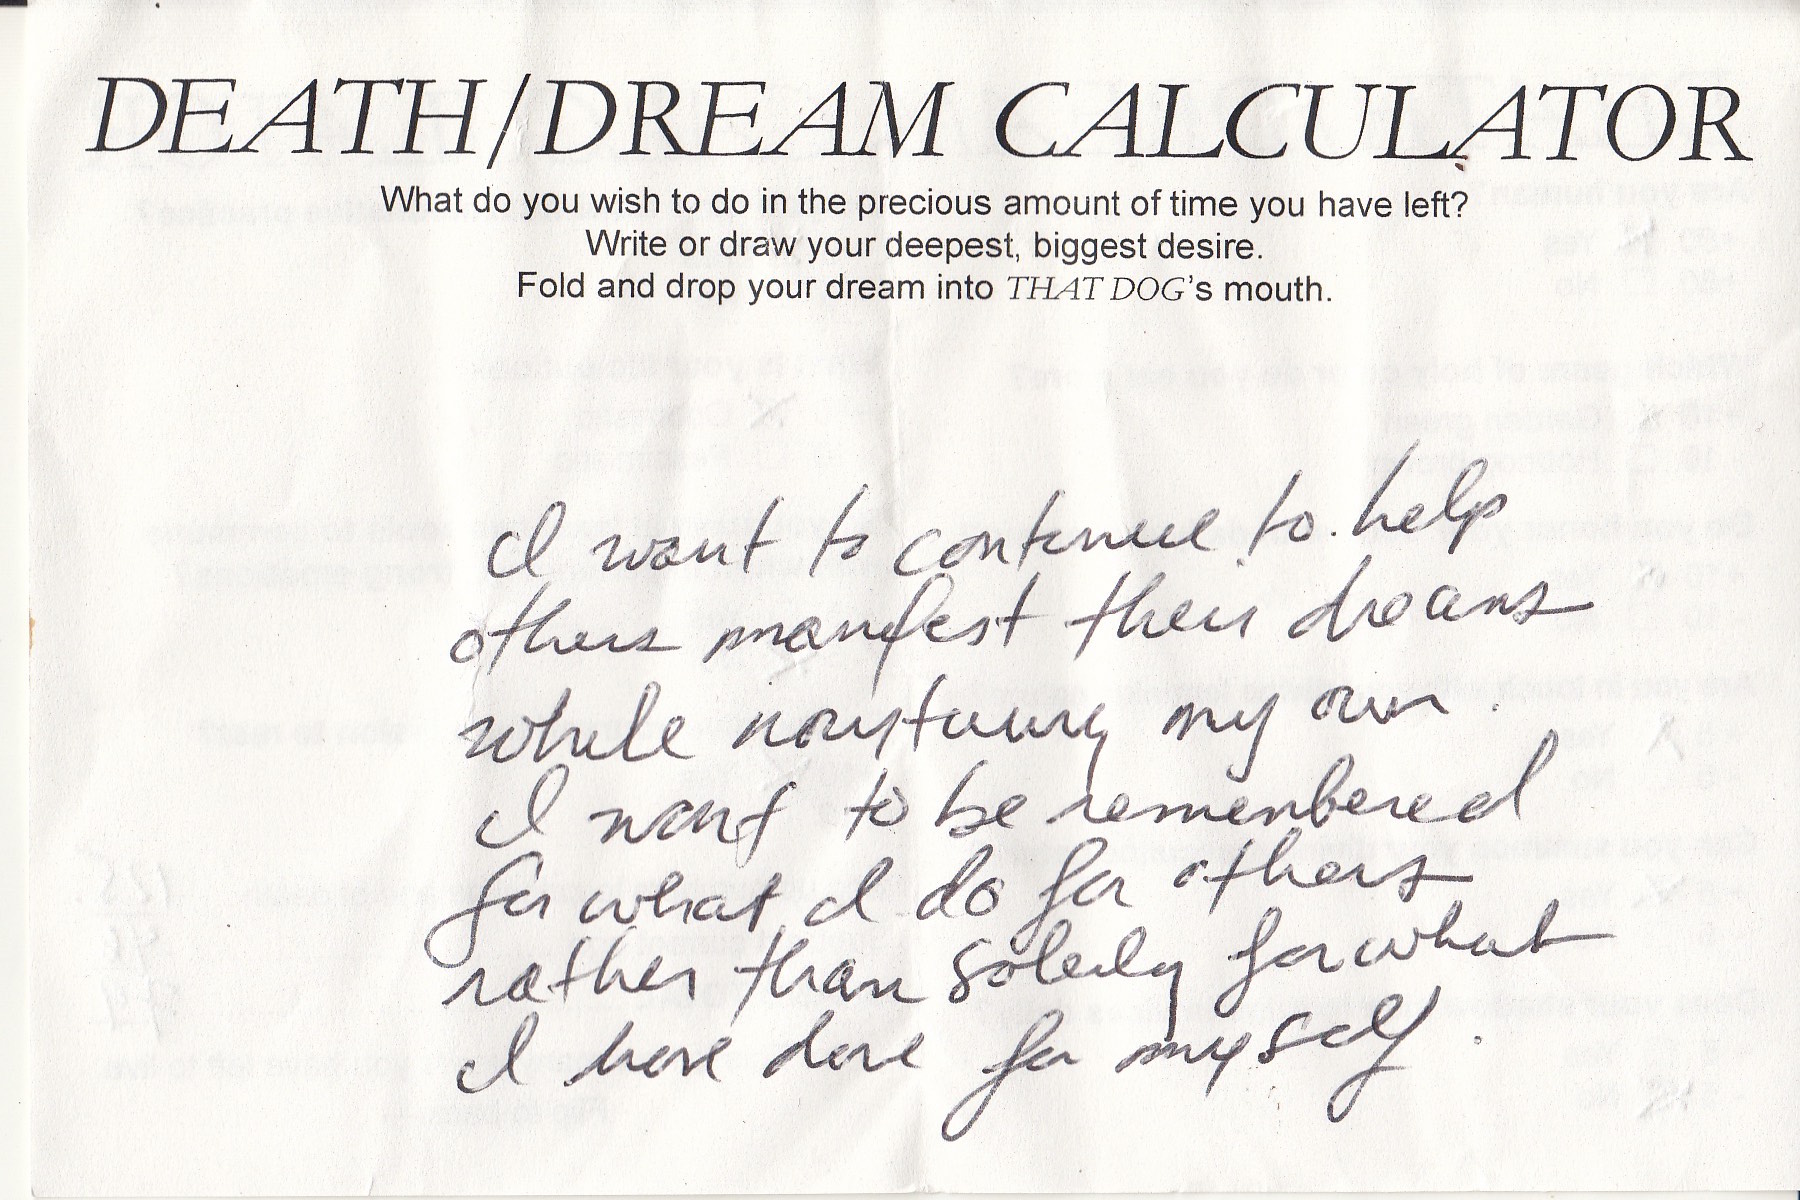 DEATH/DREAM CALCULATOR
What do you wish to do in the precious amount of time you have left?
Write or draw your deepest, biggest desire.
Fold and drop your dream into THAT DOG's mouth.
I want to continue to help
others manifest their dreams
while nourturing my own.
I want to be remembered
for what I do for others
rather than solely for what
I have done for myself.